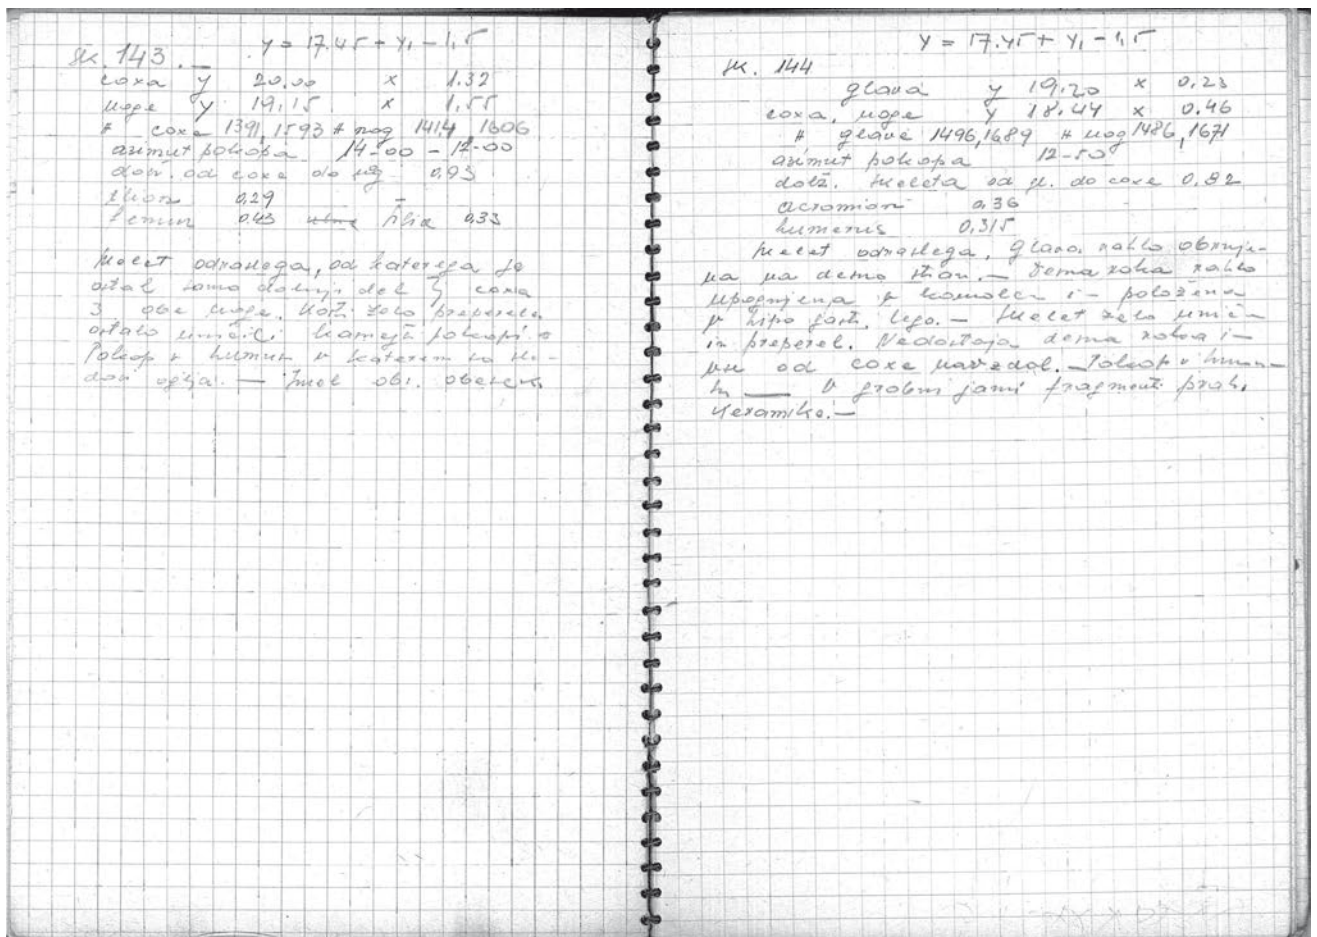 y = 17.45 + y₁ - 1,5
sk. 143.
coxa y 20.00 x 1.32
noge y 19,15 x 1,55
# coxe 1391,1593 # nog 1414,1606
azimut pokopa 14-00 - 12-00
dolž. od coxe do 0,93
0,29
femur 0,43 tibia 0,33
skelet odraslega, od katerega je
ostal samo dolnji del coxa
obe noge. Kosti zelo preperele
ostalo uničili kasnejši pokopi.
Pokop v humus v katerem so
oglja. —
y = 17.45 + y₁ - 1,5
sk. 144
glava y 19,20 x 0,23
coxa, noge y 18.44 x 0.46
# glave 1496,1689 # nog 1486,1671
azimut pokopa 12-50
dolž. skeleta od gl. do coxe 0,82
acromion 0,36
humerus 0,315
skelet odraslega, glava rahlo obrnje-
na na desno stran. — Desna roka rahlo
upognjena v komolcu i- položena
v lego. — skelet zelo uniče-
in preperel. Nedostaja desna roka i-
od coxe navzdol. — Pokop v humu-
— V grobni jami fragmenti prah.
keramike. —